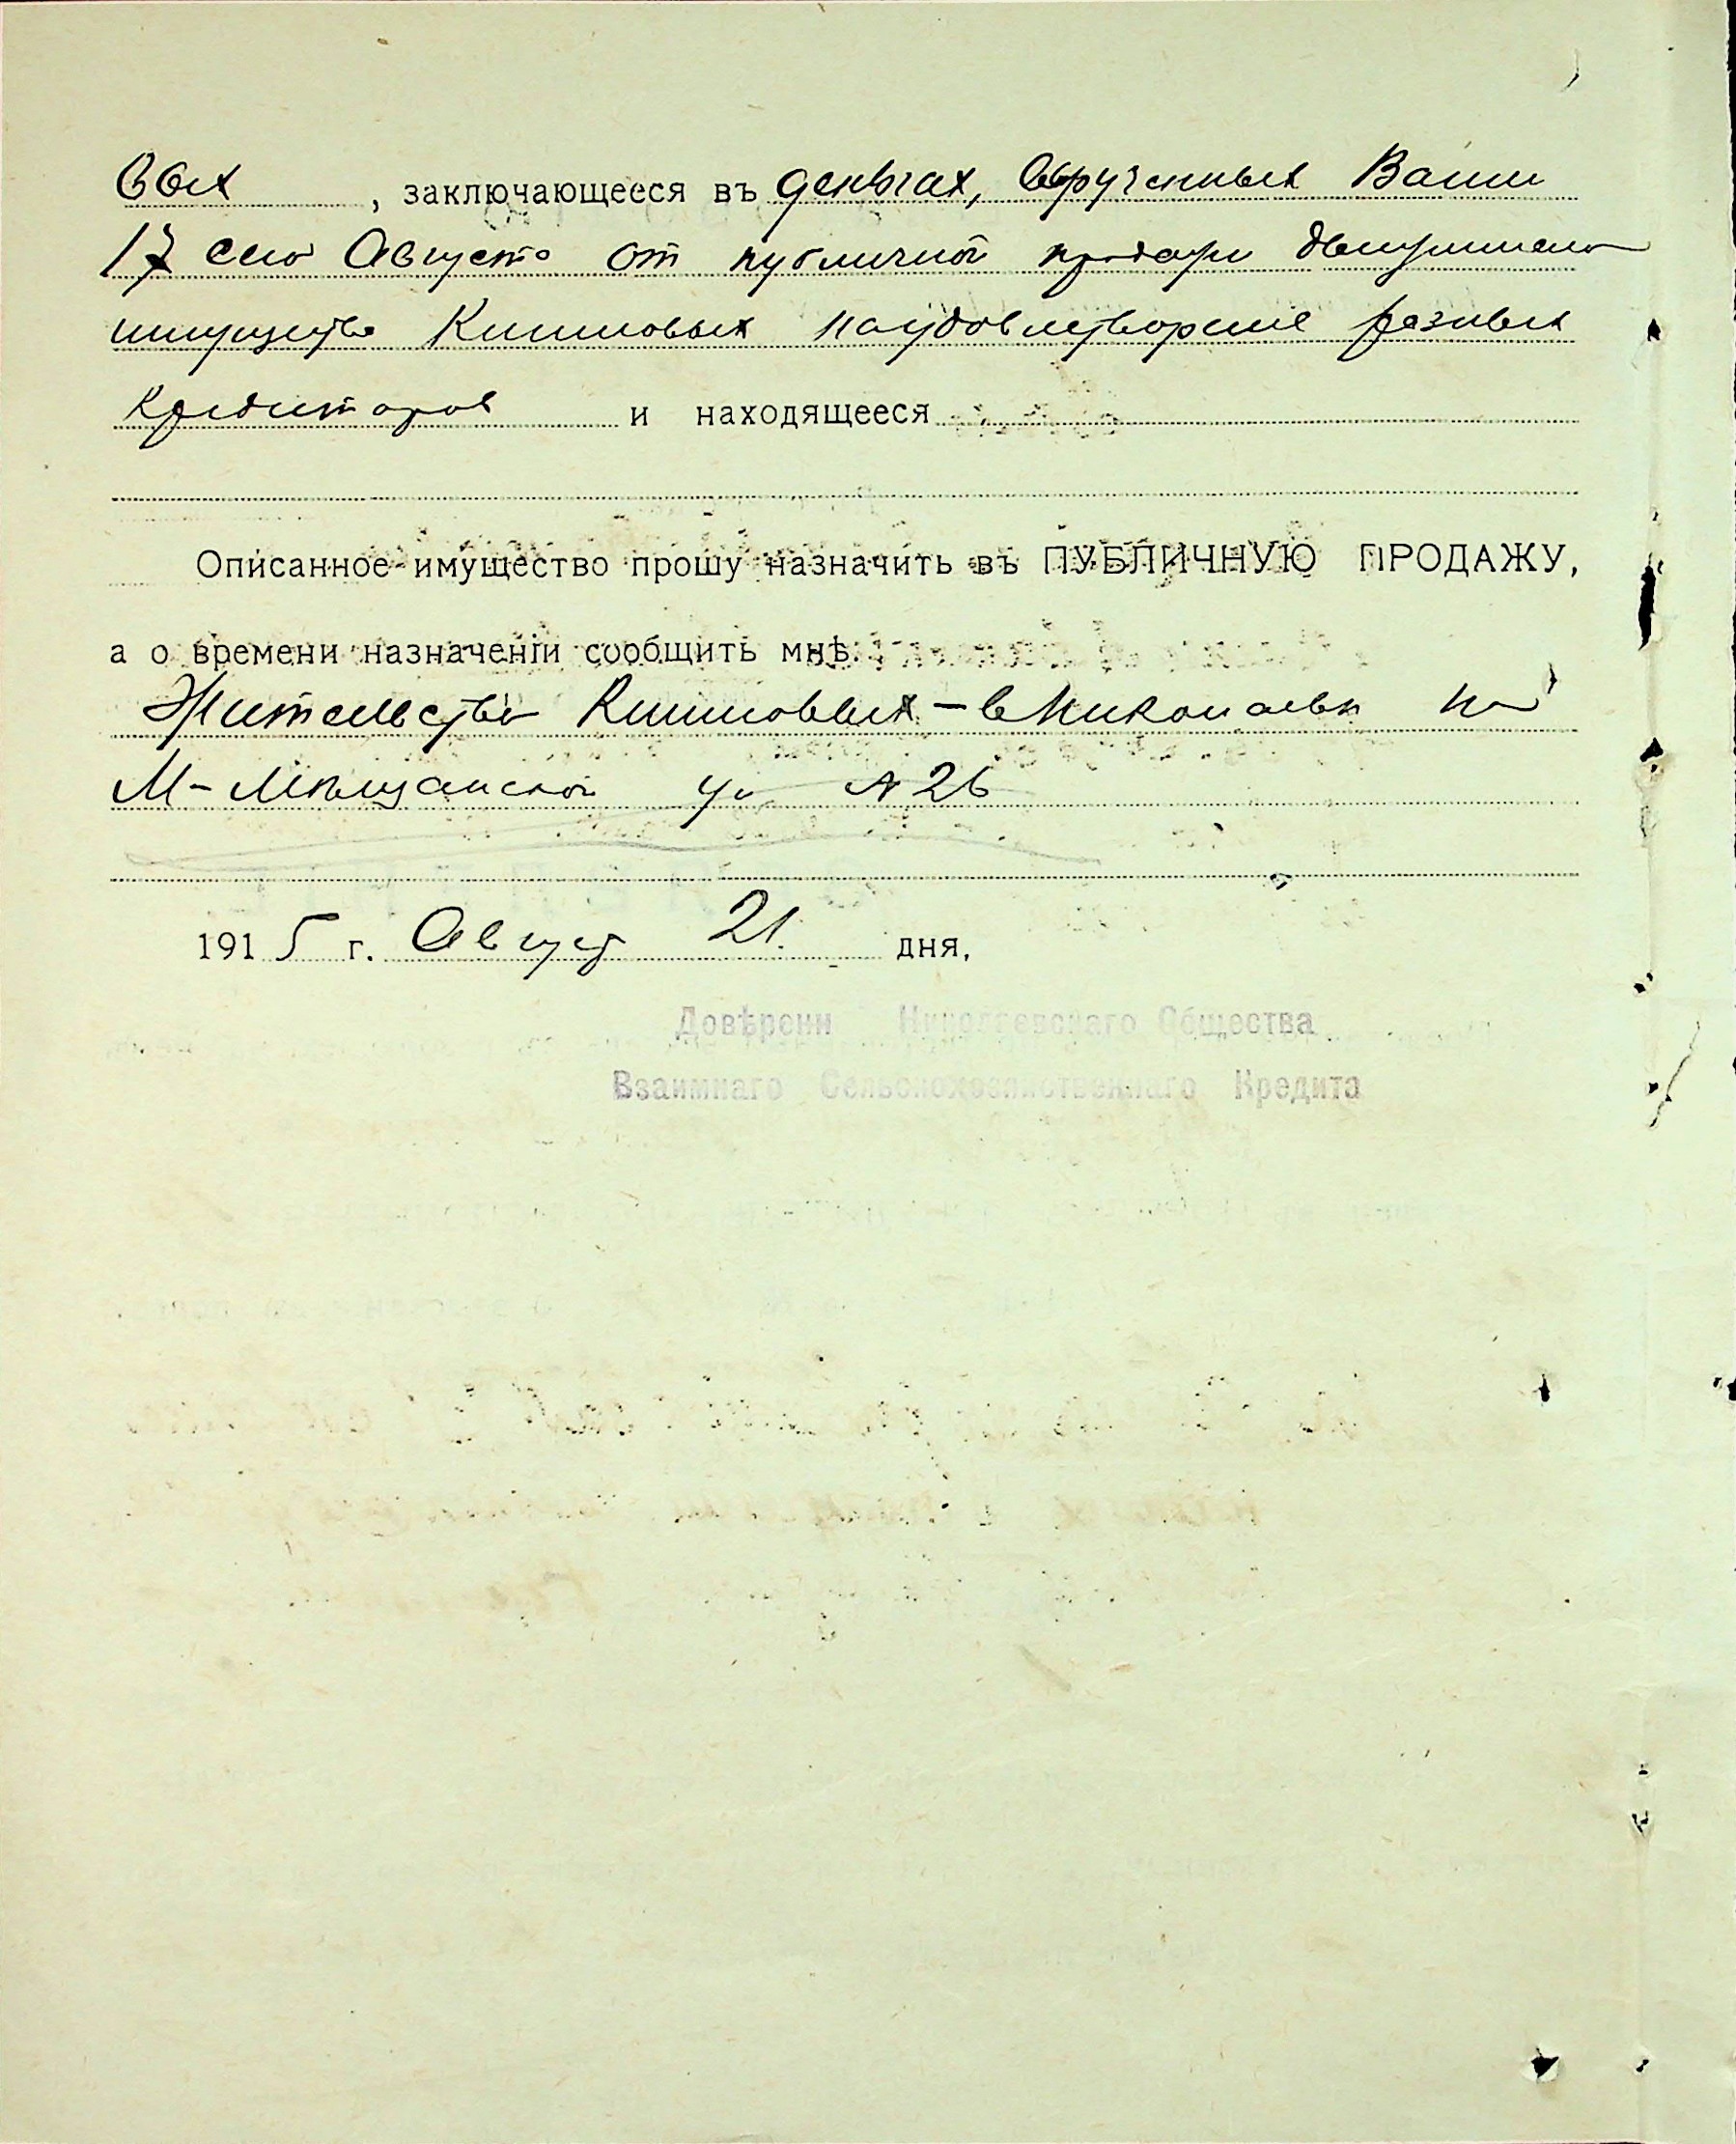 вых, заключающееся въ деньгах, вырученных Вами
17 сего Августа от публичной продажи движимаго
имущества Климовых на удовлетворение разных
кредиторов и находящееся
Описанное имущество прошу назначить въ ПУБЛИЧНУЮ ПРОДАЖУ,
а о времени назначенiи сообщить мнѣ.
Жительство Климовых – в Николаеве на
М-Мѣщанской ул № 26
1915 г. Август 21. дня,
Довѣренн Николаевскаго Общества
Взаимнаго Сельскохозяйственнаго Кредита